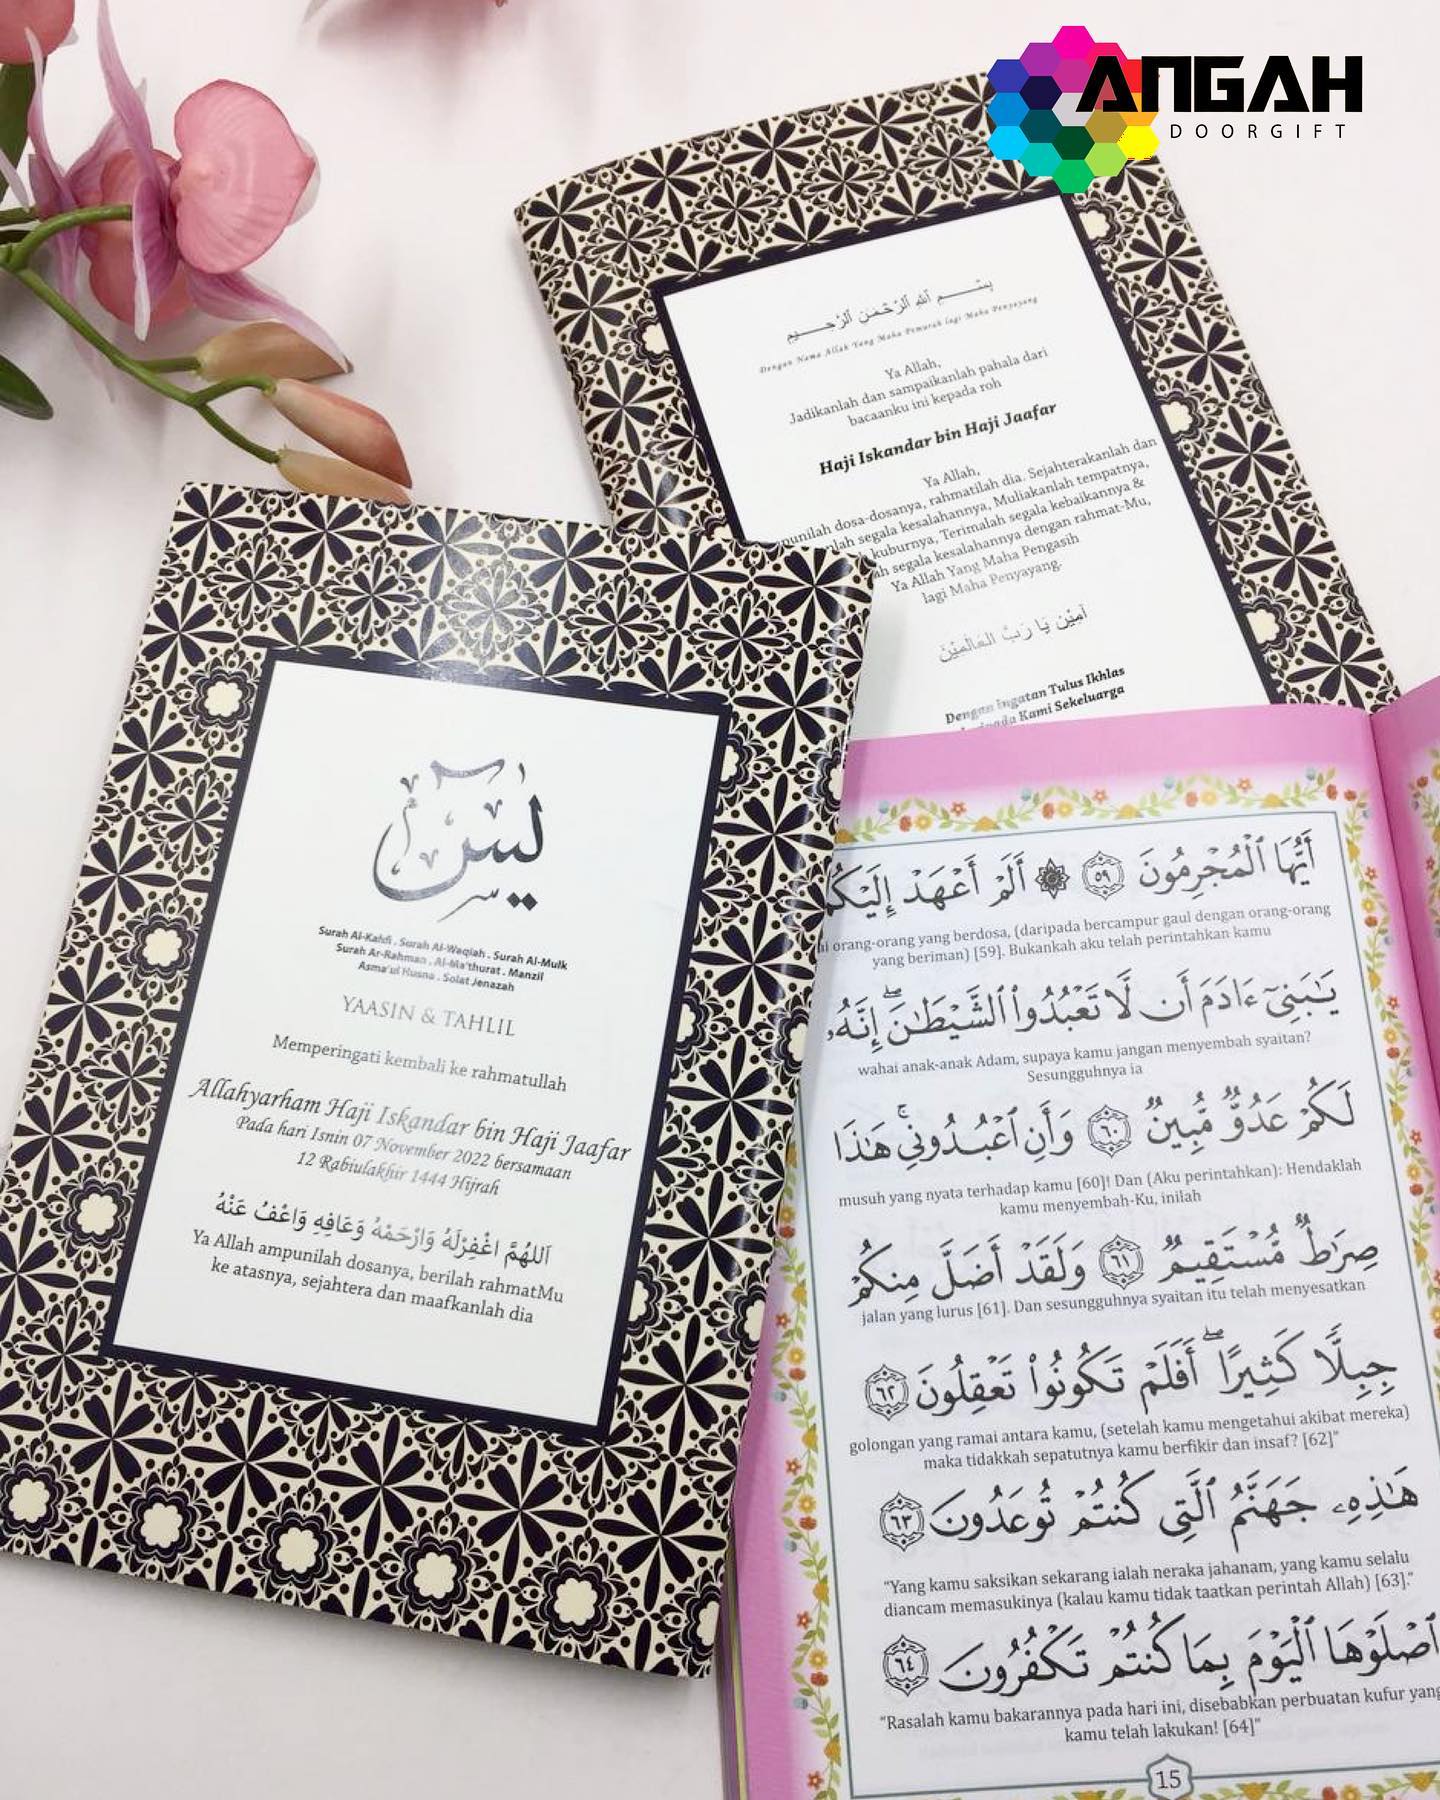 ANGAH
DOORGIFT
بِسْـــــــمِ ٱللَّهِ ٱلرَّحْمَـٰنِ ٱلرَّحِـــــيمِ
Dengan Nama Allah Yang Maha Pemurah lagi Maha Penyayang
Ya Allah,
Jadikanlah dan sampaikanlah pahala dari
bacaanku ini kepada roh
Haji Iskandar bin Haji Jaafar
Ya Allah,
punilah dosa-dosanya, rahmatilah dia. Sejahterakanlah dan
lah segala kesalahannya, Muliakanlah tempatnya,
kuburnya, Terimalah segala kebaikannya &
ah segala kesalahannya dengan rahmat-Mu,
Ya Allah Yang Maha Pengasih
lagi Maha Penyayang.
آمِيْن يَا رَبَّ الْعَالَمِيْنَ
Dengan Ingatan Tulus Ikhlas
Kami Sekeluarga
يس
Surah Al-Kahfi . Surah Al-Waqiah . Surah Al-Mulk
Surah Ar-Rahman . Al-Ma'thurat . Manzil
Asma'ul Husna . Solat Jenazah
YAASIN & TAHLIL
Memperingati kembali ke rahmatullah
Allahyarham Haji Iskandar bin Haji Jaafar
Pada hari Isnin 07 November 2022 bersamaan
12 Rabiulakhir 1444 Hijrah
اَللهُمَّ اغْفِرْلَهُ وَارْحَمْهُ وَعَافِهِ وَاعْفُ عَنْهُ
Ya Allah ampunilah dosanya, berilah rahmatMu
ke atasnya, sejahtera dan maafkanlah dia
أَيُّهَا ٱلْمُجْرِمُونَ ٥٩ أَلَمْ أَعْهَدْ إِلَيْكُمْ
orang-orang yang berdosa, (daripada bercampur gaul dengan orang-orang
yang beriman) [59]. Bukankah aku telah perintahkan kamu
يَـٰبَنِىٓ ءَادَمَ أَن لَّا تَعْبُدُوا۟ ٱلشَّيْطَـٰنَ ۖ إِنَّهُۥ
wahai anak-anak Adam, supaya kamu jangan menyembah syaitan?
Sesungguhnya ia
لَكُمْ عَدُوٌّ مُّبِينٌ ٦٠ وَأَنِ ٱعْبُدُونِى ۚ هَـٰذَا
musuh yang nyata terhadap kamu [60]! Dan (Aku perintahkan): Hendaklah
kamu menyembah-Ku, inilah
صِرَٰطٌ مُّسْتَقِيمٌ ٦١ وَلَقَدْ أَضَلَّ مِنكُمْ
jalan yang lurus [61]. Dan sesungguhnya syaitan itu telah menyesatkan
جِبِلًّا كَثِيرًا ۖ أَفَلَمْ تَكُونُوا۟ تَعْقِلُونَ ٦٢
golongan yang ramai antara kamu, (setelah kamu mengetahui akibat mereka)
maka tidakkah sepatutnya kamu berfikir dan insaf? [62]"
هَـٰذِهِۦ جَهَنَّمُ ٱلَّتِى كُنتُمْ تُوعَدُونَ ٦٣
"Yang kamu saksikan sekarang ialah neraka jahanam, yang kamu selalu
diancam memasukinya (kalau kamu tidak taatkan perintah Allah) [63]."
ٱصْلَوْهَا ٱلْيَوْمَ بِمَا كُنتُمْ تَكْفُرُونَ ٦٤
"Rasalah kamu bakarannya pada hari ini, disebabkan perbuatan kufur yang
kamu telah lakukan! [64]"
15